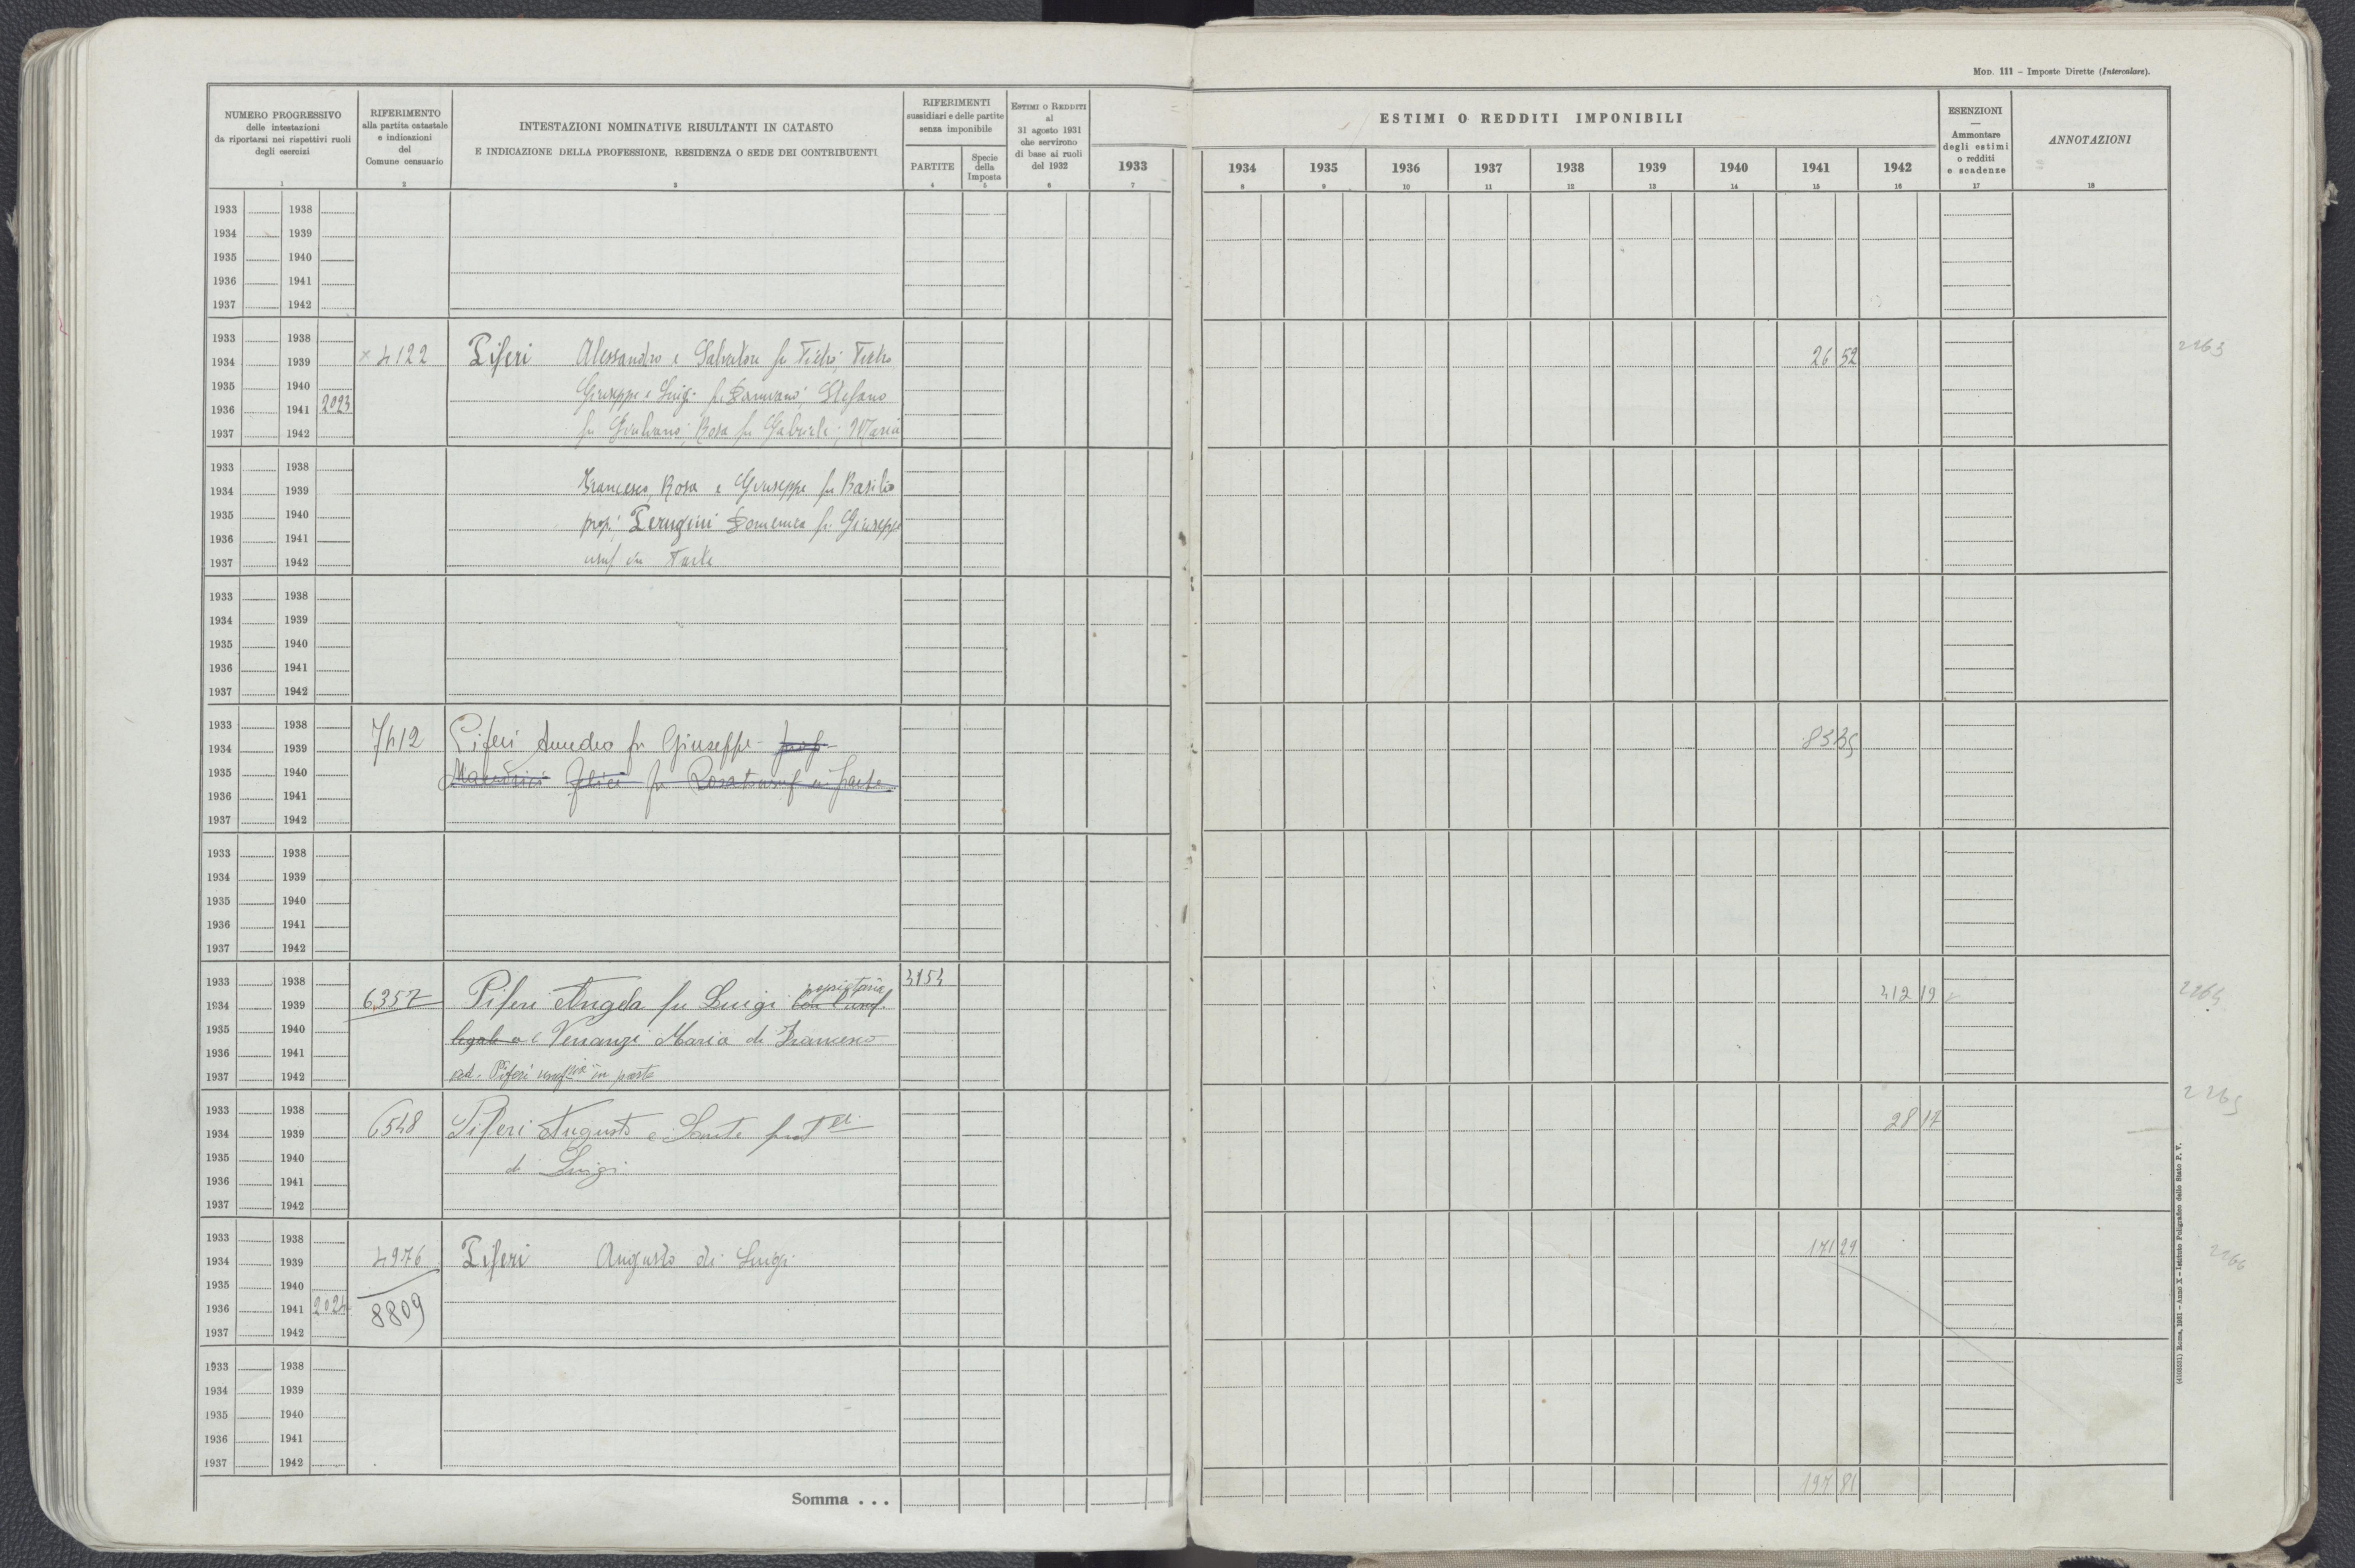 MOD. 111 – Imposte Dirette (Intercalare).
NUMERO PROGRESSIVO
delle intestazioni
da riportarsi nei rispettivi ruoli
degli esercizi
1
RIFERIMENTO
alla partita catastale
e indicazioni
del
Comune censuario
2
INTESTAZIONI NOMINATIVE RISULTANTI IN CATASTO
E INDICAZIONE DELLA PROFESSIONE, RESIDENZA O SEDE DEI CONTRIBUENTI
3
RIFERIMENTI
sussidiari e delle partite
senza imponibile
PARTITE
4
Specie
della
Imposta
5
ESTIMI O REDDITI
al
31 agosto 1931
che servirono
di base ai ruoli
del 1932
6
ESTIMI O REDDITI IMPONIBILI
1933 1934 1935 1936 1937 1938 1939 1940 1941 1942
7 8 9 10 11 12 13 14 15 16
ESENZIONI
—
Ammontare
degli estimi
o redditi
e scadenze
17
ANNOTAZIONI
18
1933 1938
1934 1939
1935 1940
1936 1941
1937 1942
1933 1938
1934 1939 × 4122 Piferi Alessandro e Salvatore fu Pietro; Pietro 26 52 2263
1935 1940 Giuseppe e Luigi fu Damiano; Stefano
1936 1941 2023
1937 1942 fu Giuliano; Rosa fu Gabriele; Maria
1933 1938
1934 1939 Francesco, Rosa e Giuseppe fu Basilio
1935 1940 prop; Perugini Domenica fu Giuseppe
1936 1941
1937 1942 usuf in Parte
1933 1938
1934 1939
1935 1940
1936 1941
1937 1942
1933 1938
1934 1939 7412 Piferi Amedeo fu Giuseppe prop
1935 1940 Felici fu usuf in parte
1936 1941
1937 1942
1933 1938
1934 1939
1935 1940
1936 1941
1937 1942
1933 1938
1934 1939 6357 Piferi Angela fu Luigi con l'usuf. proprietaria 412 19
1935 1940 legale a e Venanzi Maria di Francesco
1936 1941
1937 1942 ved. Piferi in parte
1933 1938
1934 1939 6548 Piferi Augusto e Sante fratelli 28 17 2265
1935 1940 di Luigi
1936 1941
1937 1942
1933 1938
1934 1939 4976 Piferi Augusto di Luigi 171 29 2266
1935 1940
1936 1941 2024 8809
1937 1942
1933 1938
1934 1939
1935 1940
1936 1941
1937 1942
Somma . . . 197 81
(4103531) Roma, 1931 – Anno X – Istituto Poligrafico dello Stato P. V.